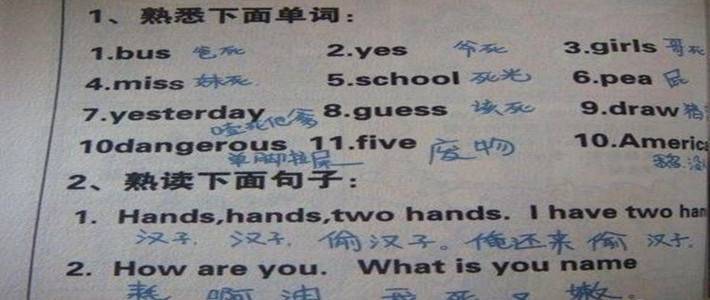 1、熟悉下面单词：
1.bus 爸死 2.yes 爷死 3.girls 哥死
4.miss 妹死 5.school 死光 6.pea 屁
7.yesterday 8.guess 该死 9.draw 猪
噎死他爹
10dangerous 11.five 废物 10.America
单脚拉屎
2、熟读下面句子：
1. Hands,hands,two hands. I have two han
汉子. 汉子. 偷汉子。俺还来偷汉子.
2. How are you. What is you name